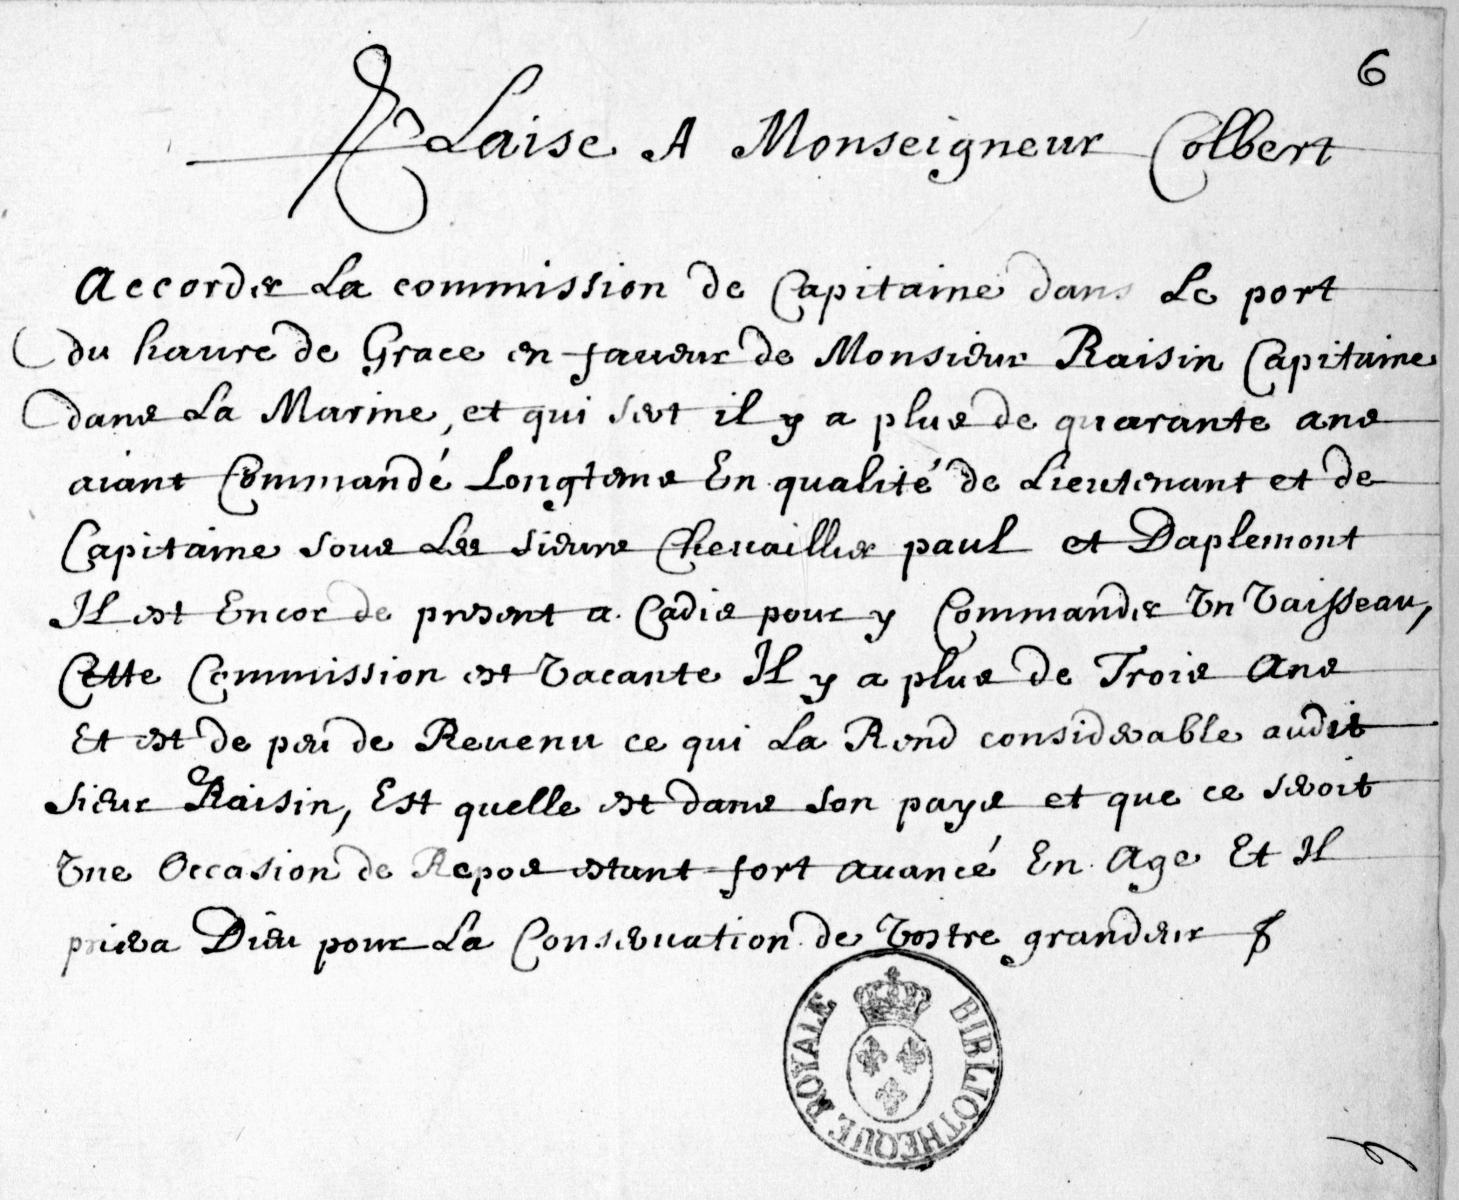 6
Plaise A Monseigneur Colbert
Accorder La commission de Capitaine dans Le port
du havre de Grace en faveur de Monsieur Raisin Capitaine
dans La Marine, et qui sert il y a plus de quarante ans
aiant Commandé Longtems En qualité de Lieutenant et de
Capitaine sous Les sieurs Chevaillier paul et Daplemont
Il est Encor de present a Cadis pour y Commander Vn Vaisseau,
Cette Commission est Vacante Il y a plus de Trois Ans
Et est de peu de Revenu ce qui La Rend considerable audit
sieur Raisin, Est quelle est dans son pays et que ce seroit
Vne Occasion de Repos estant fort avancé En Age Et Il
priera Dieu pour La Conservation de Vostre grandeur
BIBLIOTHEQUE ROYALE